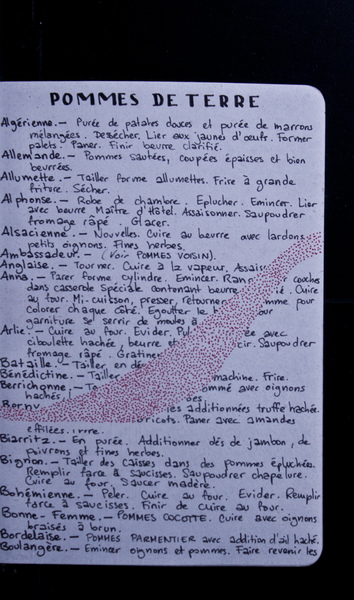 POMMES DE TERRE
Algérienne.— Purée de patates douces et purée de marrons
mélangées. Dessécher. Lier aux jaunes d'œufs. Former
palets. Paner. Finir beurre clarifié.
Allemande.— Pommes sautées, coupées épaisses et bien
beurrées.
Allumette.— Tailler forme allumettes. Frire à grande
friture. Sécher.
Alphonse.— Robe de chambre. Eplucher. Emincer. Lier
avec beurre Maître d'Hôtel. Assaisonner. Saupoudrer
fromage râpé. Glacer.
Alsacienne.— Nouvelles. Cuire au beurre avec lardons,
petits oignons. Fines herbes.
Ambassadeur.— (Voir POMMES VOISIN).
Anglaise.— Tourner. Cuire à la vapeur.
Anna.— Parer forme cylindre. Emincer. couches
dans casserole spéciale contenant beurre Cuire
au four. Mi-cuisson, presser, retourner pour
colorer chaque côté. Egoutter le
garniture se servir de moules à
Arlie.— Cuire au four. Evider. avec
ciboulette hachée, beurre Saupoudrer
fromage râpé. Gratiner
Bataille.— Tailler en dés
Bénédictine.— Tailler machine. Frire.
Berrichonne.— avec oignons
hachés,
Berny additionnées truffe hachée.
Paner avec amandes
effilées.
Biarritz.— En purée. Additionner dés de jambon, de
poivrons et fines herbes.
Bignon.— Tailler des caisses dans des pommes épluchées.
Remplir farce à saucisses. Saupoudrer chapelure.
Cuire au four. Saucer madère.
Bohémienne.— Peler. Cuire au four. Evider. Remplir
farce à saucisses. Finir de cuire au four.
Bonne-Femme.— POMMES COCOTTE. Cuire avec oignons
braisés à brun.
Bordelaise.— POMMES PARMENTIER avec addition d'ail haché.
Boulangère.— Emincer oignons et pommes. Faire revenir les